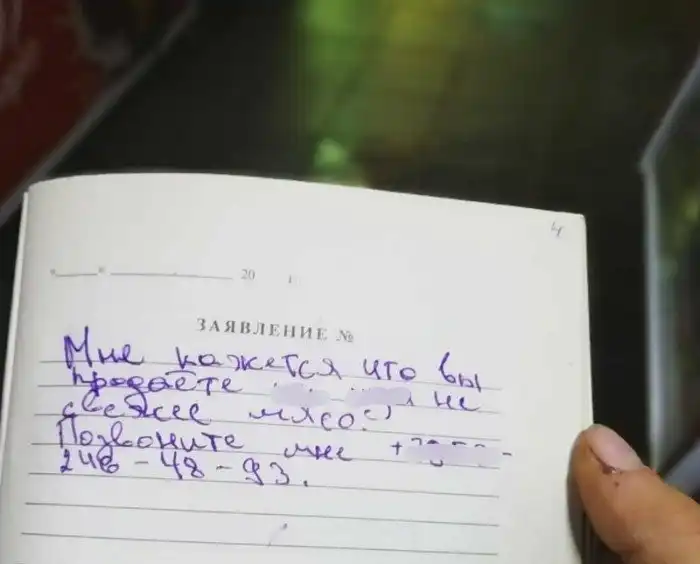 4
"___" ____________ 20 г.
ЗАЯВЛЕНИЕ №
Мне кажется что вы
продаёте не
свежее мясо:)
Позвоните мне +
248-48-93.